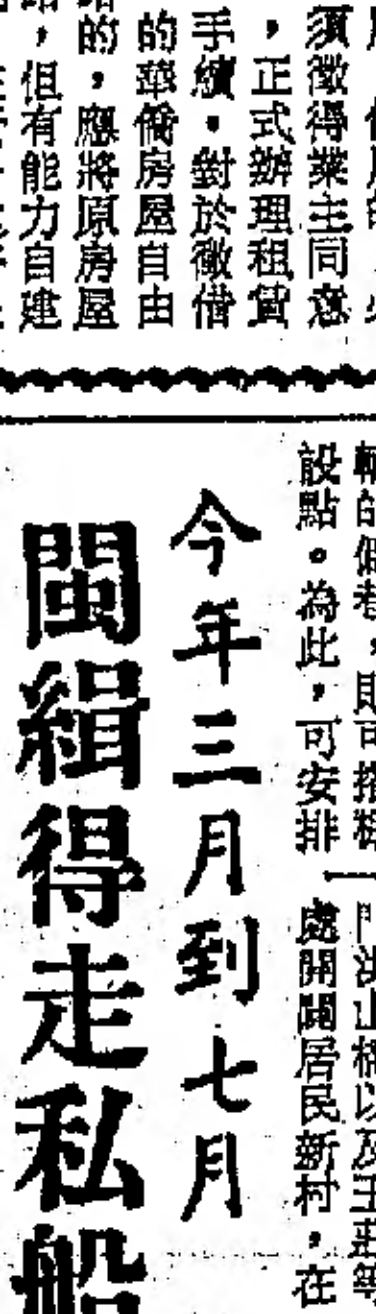 須徵得業主同意
，正式辦理租賃
手續。對於徵借
的華僑房屋自由
的，應將原房屋
，但有能力自建
設點。為此，可安排
處開闢居民新村，在
今年三月到七月
閩緝得走私船